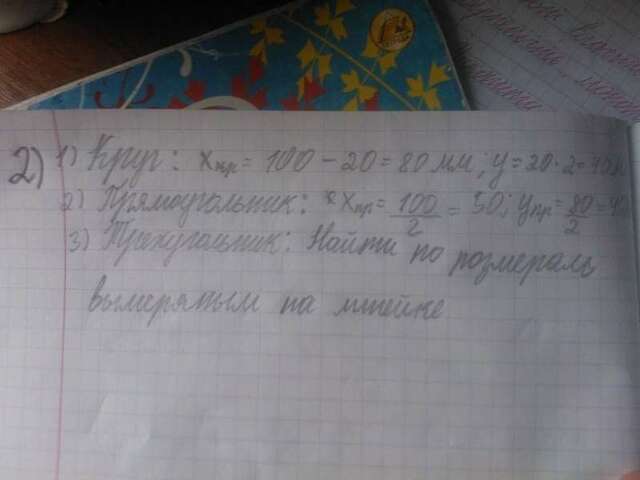 2) 1) Круг: xкр = 100 - 20 = 80 мм; y = 20 · 2 = 40
2) Прямоугольник: xпр = 100/2 = 50; yпр = 80/2 = 40
3) Треугольник: Найти по размерам
вымеряным на линейке